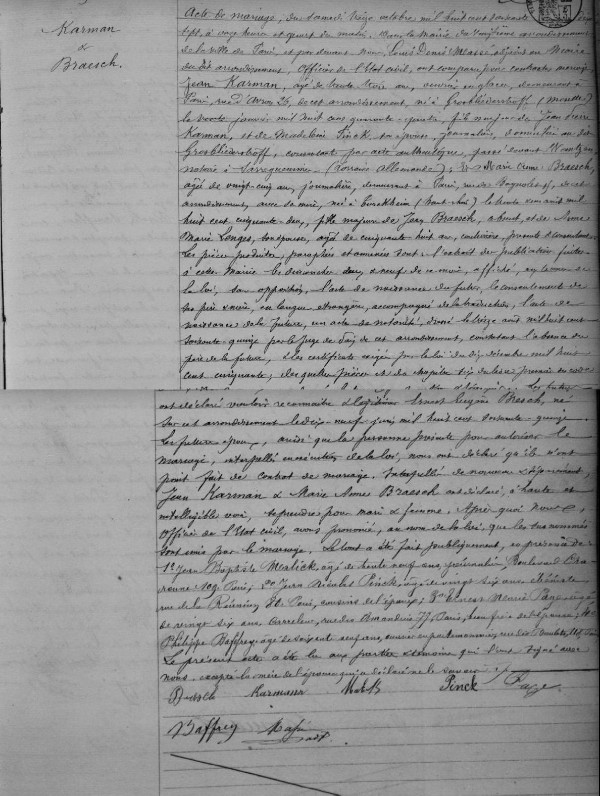 Karman
&
Braesch.
Acte de mariage, du samedi treize octobre mil huit cent soixante
sept, à onze heures et quart du matin. 
de la ville de Paris, et par devant Nous, Louis Denis Masse adjoint au Maire
du dit arrondissement, Officier de l'Etat civil, ont comparu pour contracter mariage,
Jean Karman, âgé de trente trois ans, ouvrier en glaces, demeurant à
Paris, rue d'Avron 26, de cet arrondissement, né à Grosbliederstroff (Moselle)
le trente janvier mil huit cent quarante-quatre, fils majeur de Jean Pierre
Karman, et de Madeleine Pinck, son épouse, journaliers, domiciliés au dit
Grosbliederstroff, consentant par acte authentique, passé devant
notaire à Sarreguemines (Lorraine Allemande); & Marie Anne Braesch,
âgée de vingt-cinq ans, journalière, demeurant à Paris, rue de Bagnolet, de cet
arrondissement, avec sa mère, née à Turckheim (haut-rhin) le trente un août mil
huit cent cinquante-deux, fille majeure de Jean Braesch, absent, et de Anne
Marie Longes, son épouse, âgée de cinquante huit ans, couturière, présente & consentante
Les pièces produites, paraphées et annexées sont: l'extrait des publications faites
à cette Mairie les dimanches deux & neuf de ce mois, affichées, en termes de
la loi, sans opposition, l'acte de naissance du futur, le consentement de
ses père & mère, en langue étrangère, accompagné de la traduction, l'acte de
naissance de la future, un acte de notoriété, dressé le treize août mil huit cent
soixante-quinze par le Juge de Paix de cet arrondissement, constatant l'absence du
père de la future, & les certificats exigés par la loi du dix décembre mil huit
cent cinquante; desquelles pièces et du chapitre six du livre premier du code
ont déclaré vouloir reconnaître & légitimer Ernest Eugène Braesch, né
sur cet arrondissement le dix-neuf juin mil huit cent soixante-quinze.
Les futurs époux, ainsi que la personne présente pour autoriser le
mariage, interpellés en exécution de la loi, nous ont déclaré qu'ils n'ont
point fait de contrat de mariage. Interpellés de nouveau & séparément,
Jean Karman & Marie Anne Braesch ont déclaré, à haute et
intelligible voix, se prendre pour mari & femme. Après quoi nous,
Officier de l'Etat civil, avons prononcé, au nom de la loi, que les susnommés
sont unis par le mariage. Le tout a été fait publiquement, en présence de
1° Jean Baptiste Malick, âgé de trente neuf ans, journalier, Boulevard
109 Paris; 2° Jean Nicolas Pinck, âgé de vingt six ans, ébéniste,
rue de la Réunion 80 Paris, cousins de l'époux; 3°
de vingt six ans, carreleur, rue des Amandiers 77, Paris, beau frère de l'épouse; 4°
Philippe Baffrey âgé de soixante
Le présent acte a été lu aux parties & témoins qui l'ont signé avec
nous, excepté la mère de l'épouse qui a déclaré ne le savoir
Karmann Malik Pinck
Baffrey